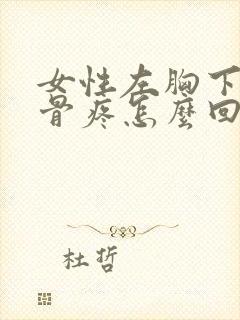 女性左胸下
骨疼怎麼回
杜哲